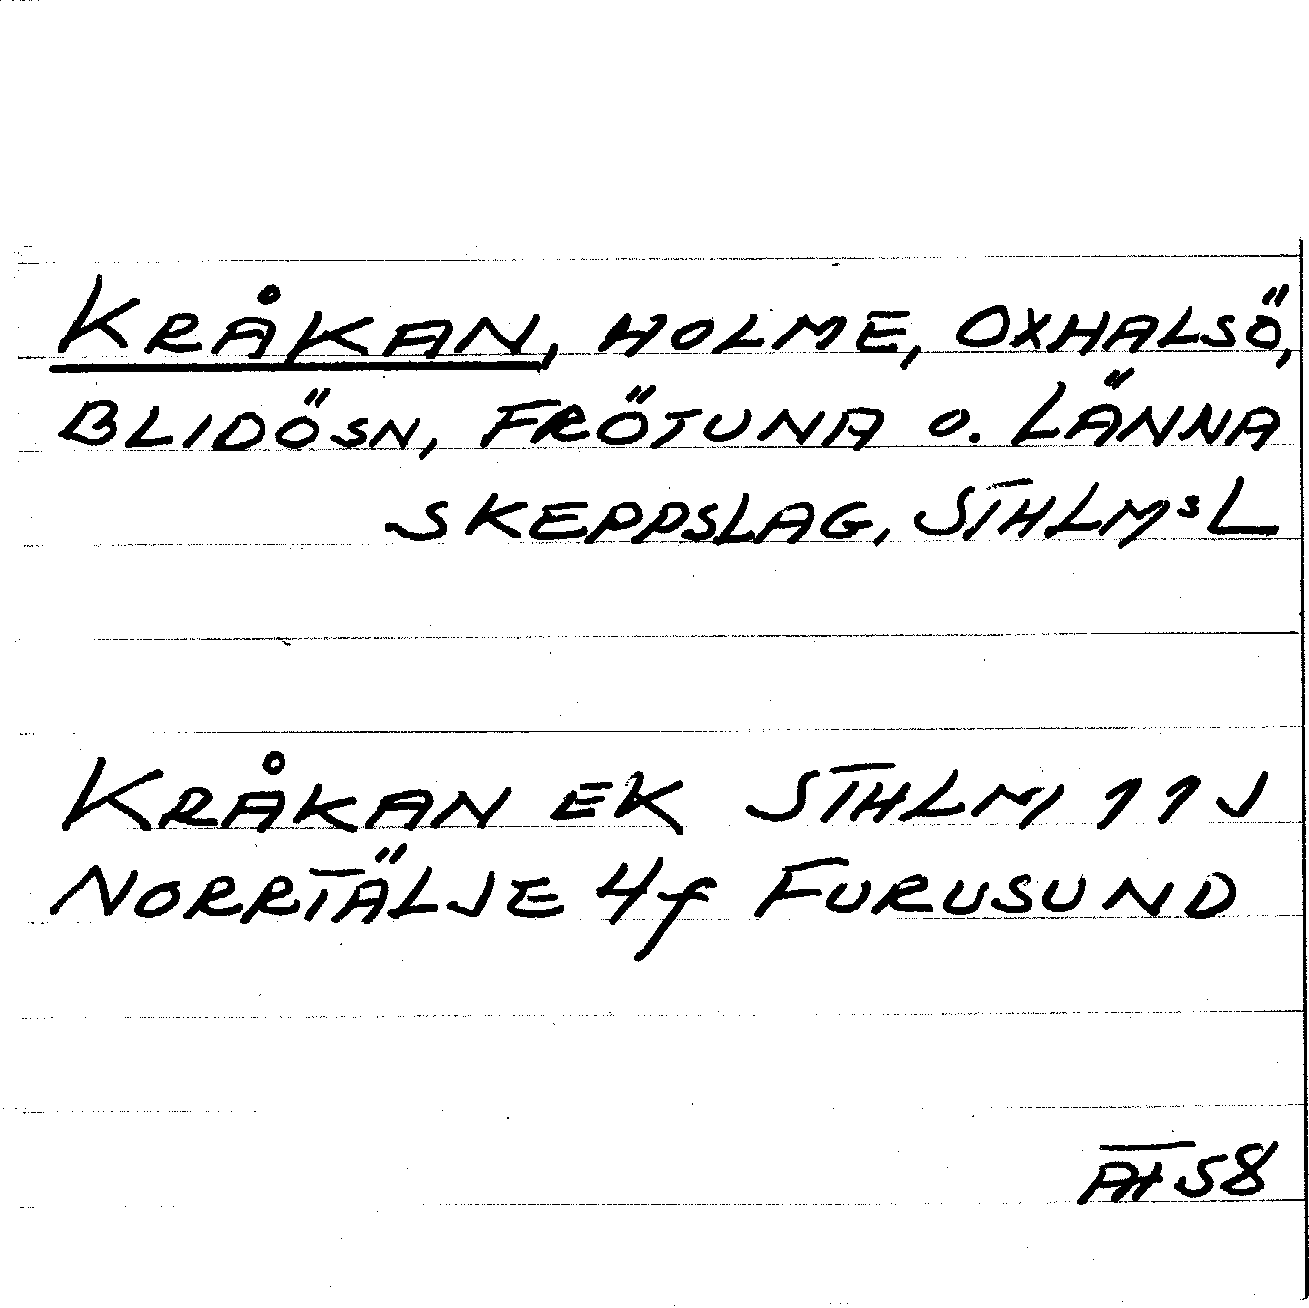 KRÅKAN, HOLME, OXHALSÖ,
BLIDÖSN, FRÖTUNA O. LÄNNA
SKEPPSLAG, STHLMS L
KRÅKAN EK STHLM 11 J
NORRTÄLJE 4f FURUSUND
AH 58